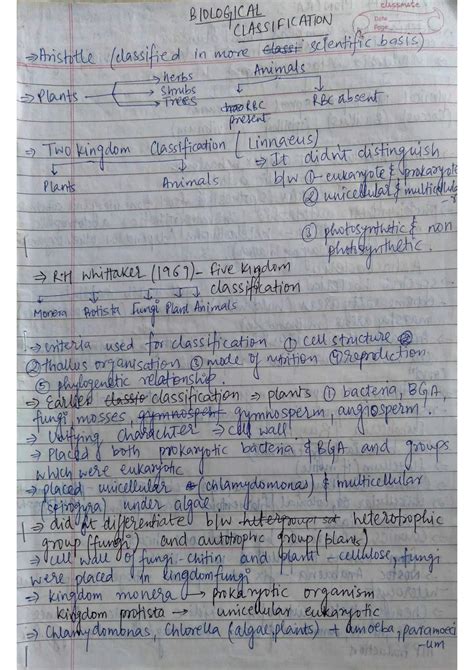 BIOLOGICAL
CLASSIFICATION
classmate
Date
Page
⇒ Aristotle (classified in more Classi scientific basis)
→ herbs
Animals
⇒ Plants → Shrubs
→ Trees
RBC RBC absent
present
⇒ Two kingdom Classification (Linnaeus)
Plants Animals
⇒ It didn't distinguish
b/w ① eukaryote & prokaryote
② unicellular & multicellula
-r
③ photosynthetic & non
photosynthetic.
⇒ R.H Whittaker (1969) - five kingdom
classification
Monera Protista Fungi Plant Animals
⇒ criteria used for classification ① cell structure ②
② thallus organisation ③ mode of nutrition ④ reproduction
⑤ phylogenetic relationship.
⇒ Earlier classic classification ⇒ plants ① bacteria, BGA,
fungi, mosses, gymnosper gymnosperm, angiosperm.
⇒ Unifying charachter ⇒ cell wall
⇒ Placed both prokaryotic bacteria & BGA and groups
which were eukaryotic
⇒ placed unicellular (chlamydomonas) & multicellular
(spirogyra) under algae.
⇒ did nt differentiate b/w heterotrophic
group (fungi) and autotrophic group (plants)
⇒ cell wall of fungi - chitin and plant - cellulose, fungi
were placed in kingdom fungi
⇒ kingdom monera → prokaryotic organism
kingdom protista → unicellular eukaryotic
⇒ Chlamydomonas, Chlorella (algae, plants) + amoeba, paramoeci
-um